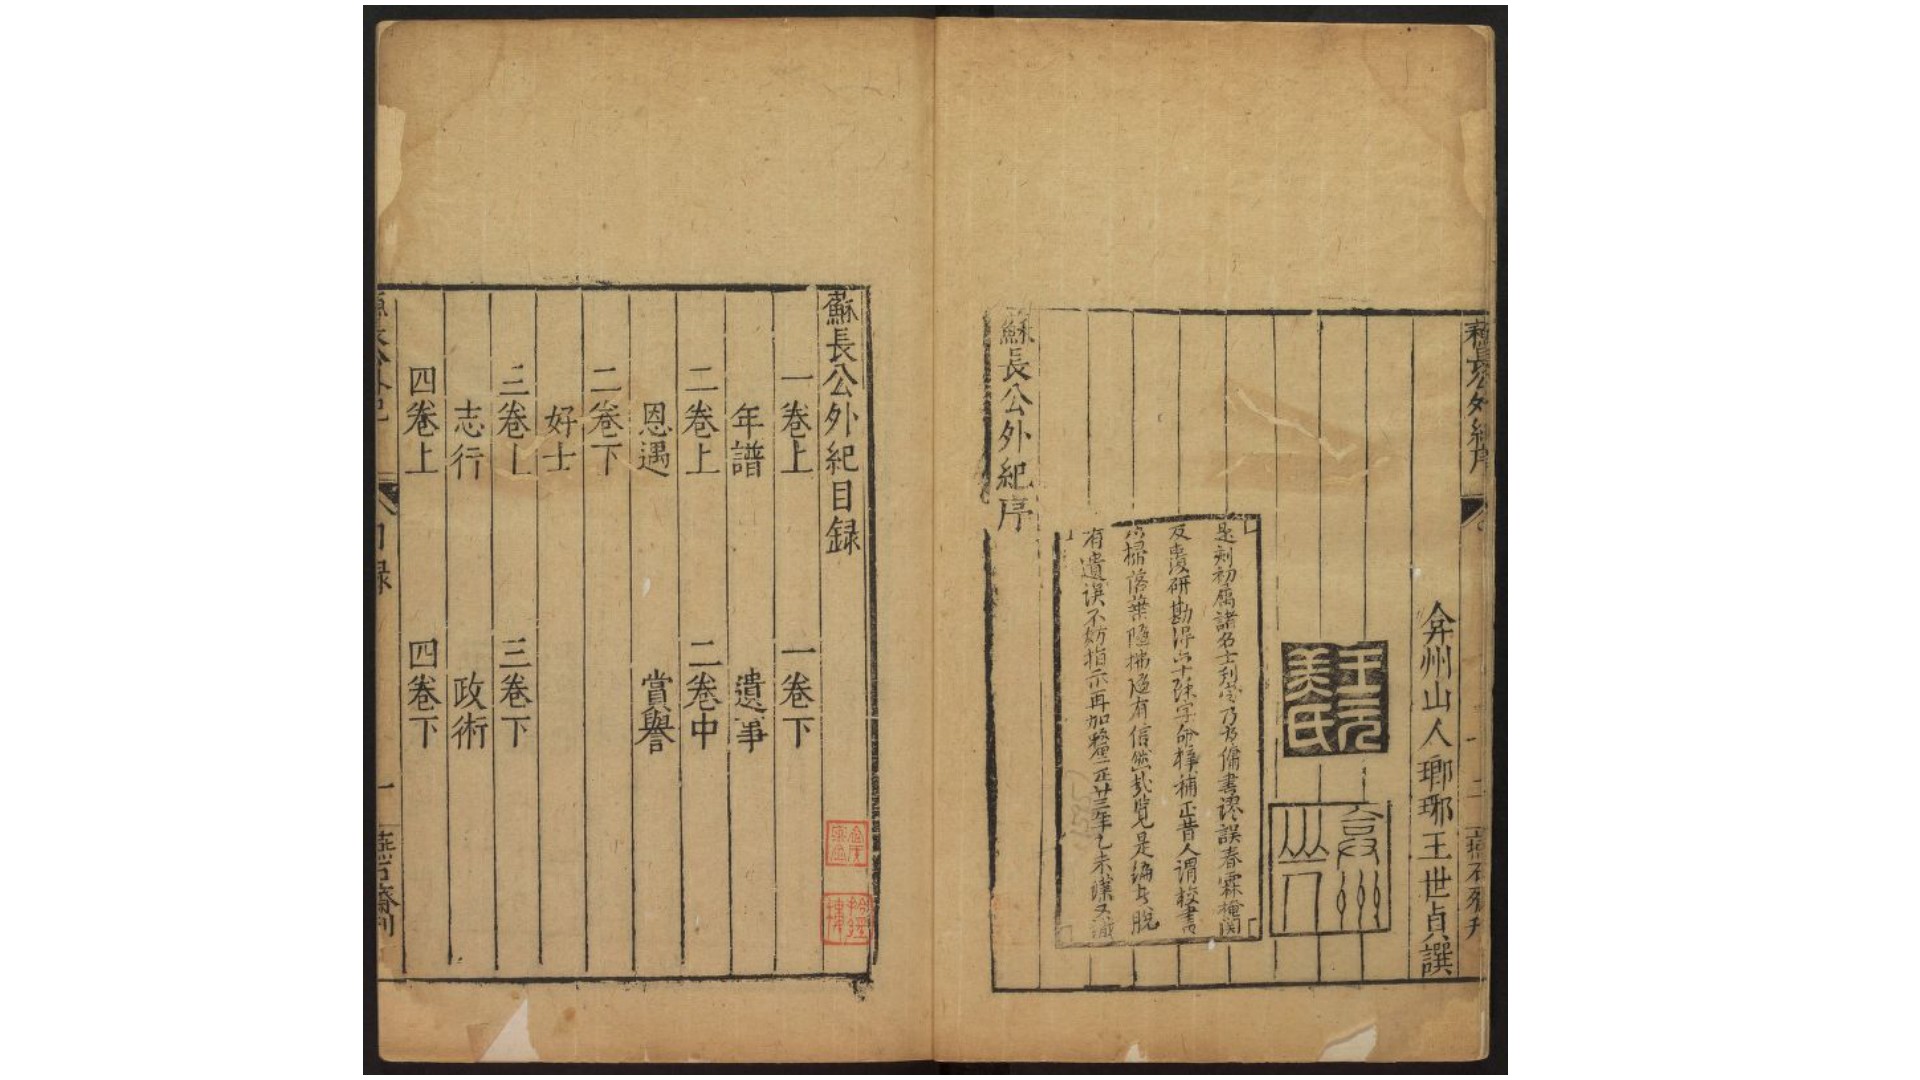 蘇長公外紀序
弇州山人瑯琊王世貞譔
王元
美氏
弇州
山人
是刻初屬諸名士列定乃為傭書謬誤春霖掩関
反覆研勘得六十餘字命梓補正昔人謂校書
如掃落葉隨掃隨有信然哉覽是編者脫
有遺誤不妨指示再加釐正廿三年乙未璞又識
蘇長公外紀序
蘇長公外紀目録
一卷上 一卷下
年譜 遺事
二卷上 二卷中
恩遇 賞譽
二卷下
好士
三卷上 三卷下
志行 政術
四卷上 四卷下
目録 一